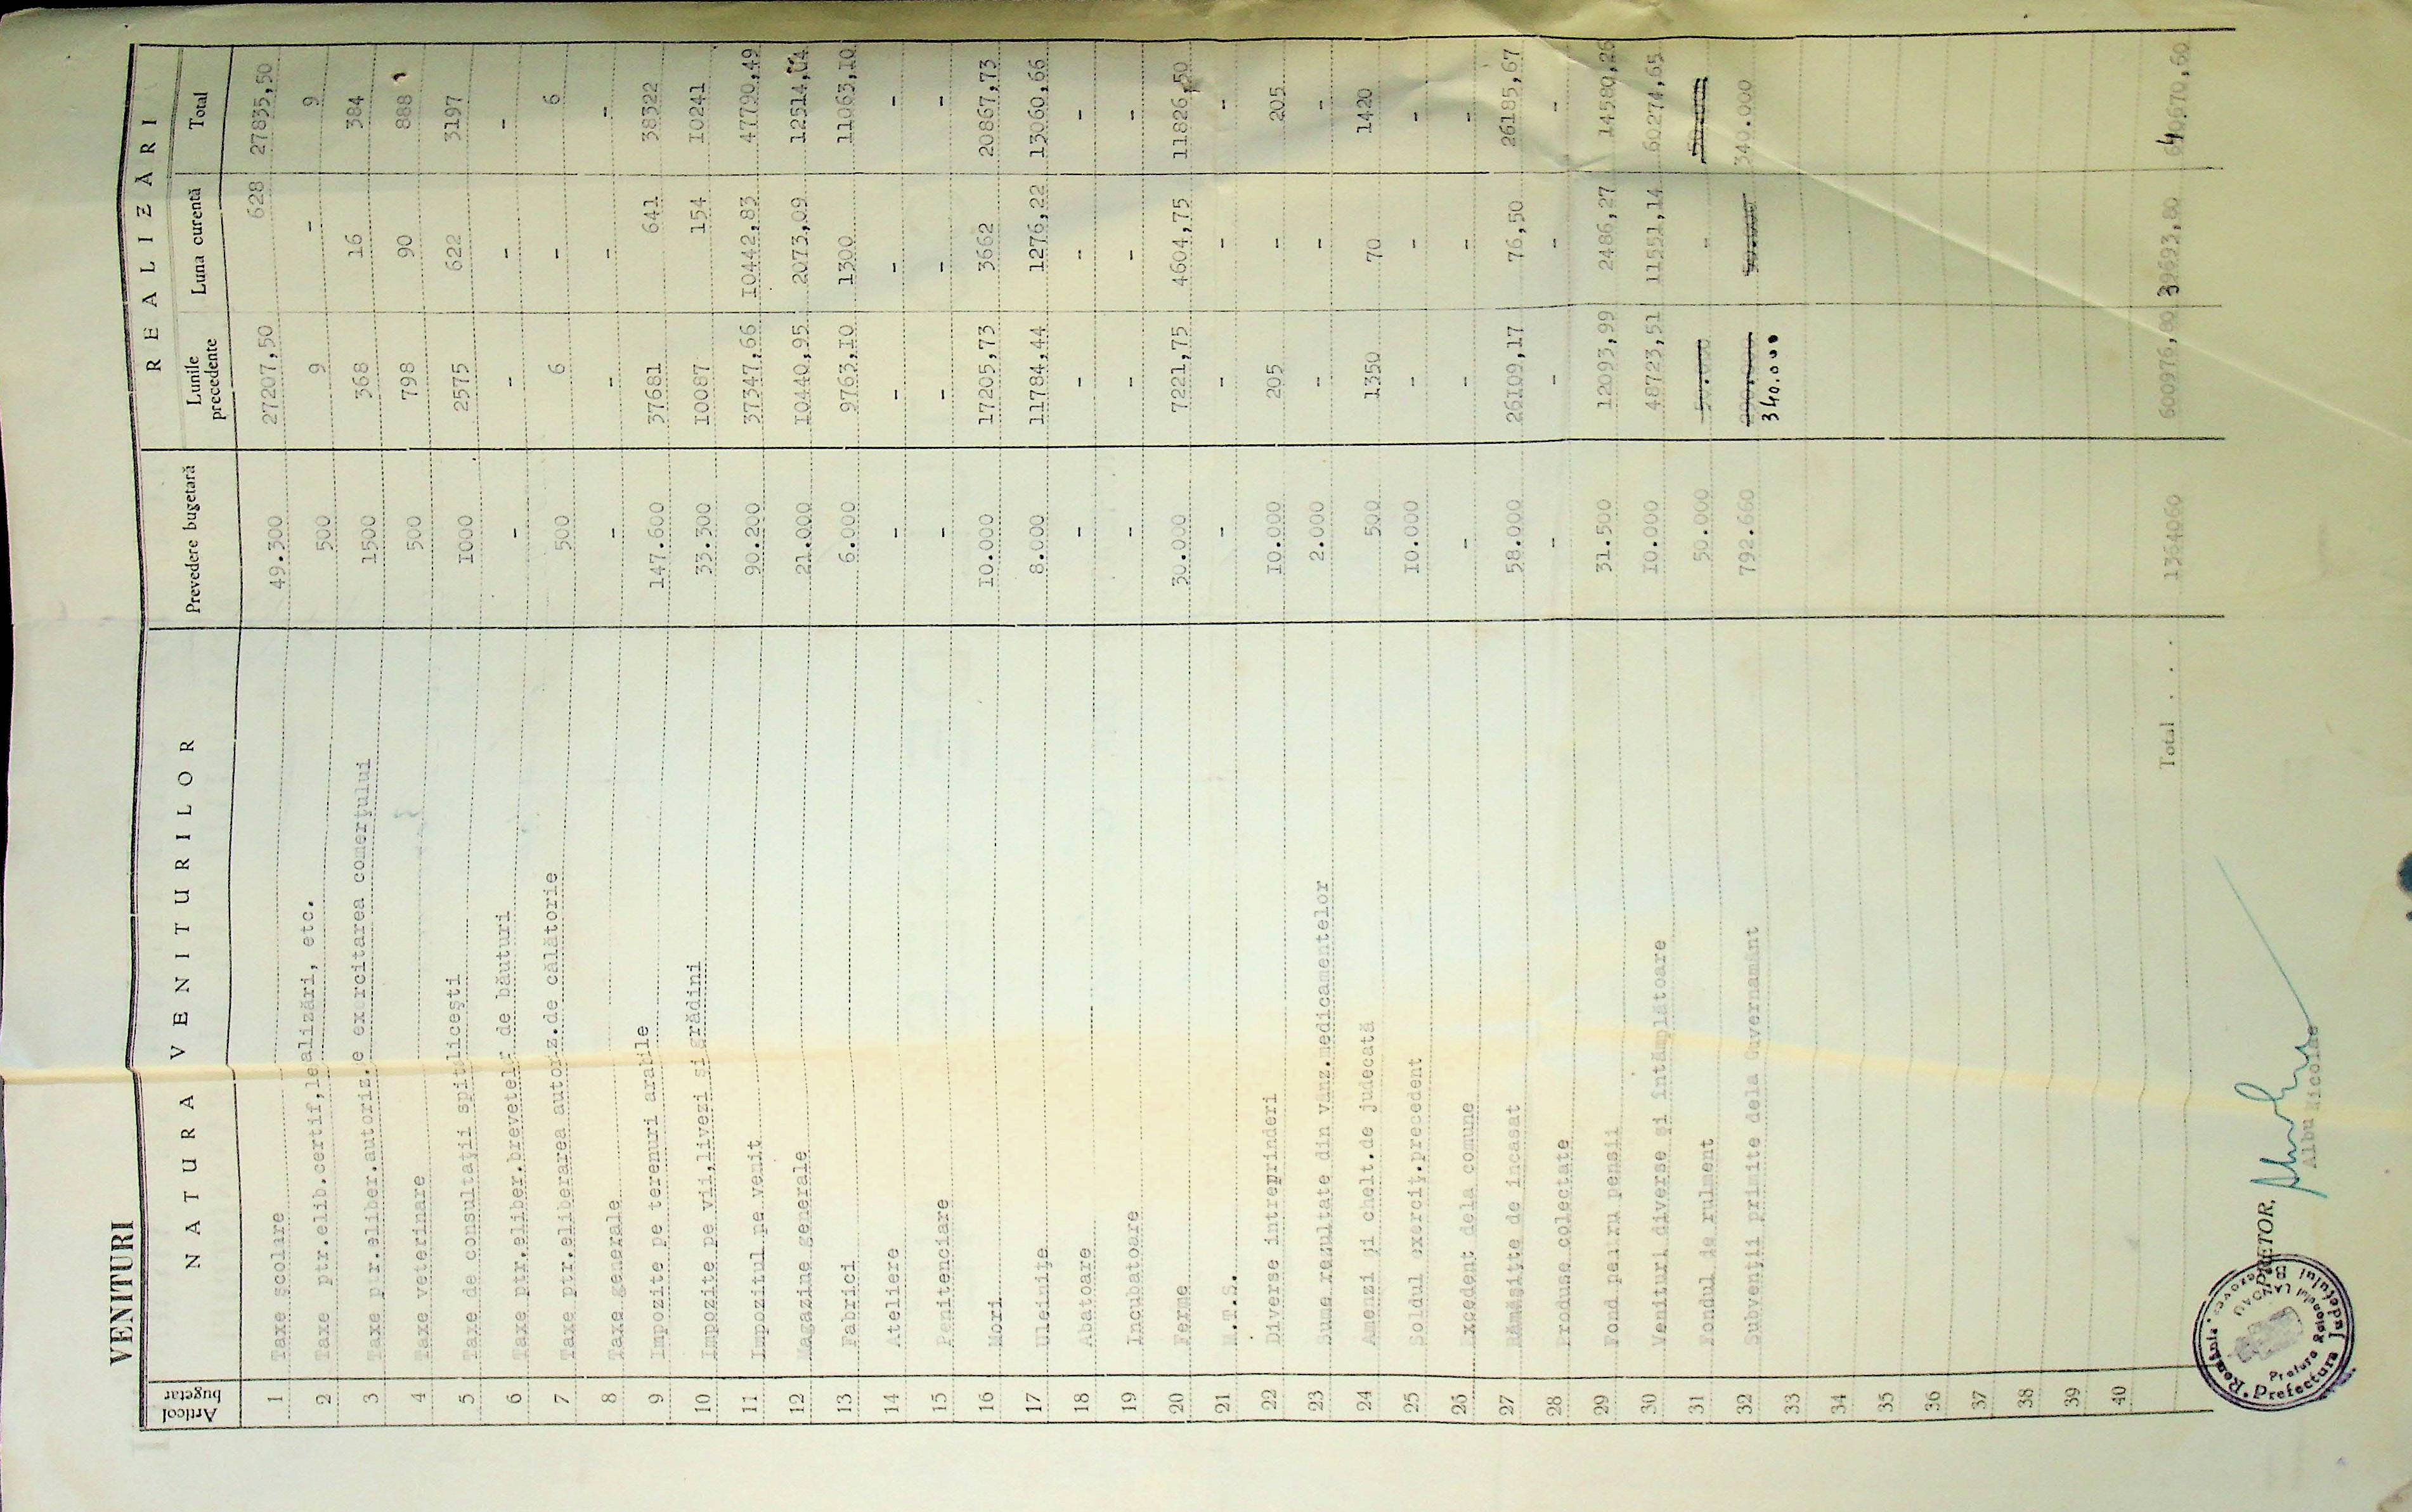 VENITURI
Articol bugetar | NATURA VENITURILOR | Prevedere bugetară | REALIZĂRI
Lunile precedente | Luna curentă | Total
1 Taxe scolare 49.300 27207,50 628 27835,50
2 Taxe ptr.elib.certif,legalizări, etc. 500 9 - 9
3 Taxe ptr.eliber.autoriz.de exercitarea comerţului 1500 368 16 384
4 Taxe veterinare 500 798 90 888
5 Taxe de consultaţii spitaliceşti 1000 2575 622 3197
6 Taxe ptr.eliber.brevetelor de băuturi - - - -
7 Taxe ptr.eliberarea autoriz.de călătorie 500 6 - 6
8 Taxe generale - - - -
9 Impozite pe terenuri arabile 147.600 37681 641 38322
10 Impozite pe vii,livezi si grădini 33.300 10087 154 10241
11 Impozitul pe venit 90.200 37347,66 10442,83 47790,49
12 Magazine generale 21.000 10440,95 2073,09 12514,04
13 Fabrici 6.000 9763,10 1300 11063,10
14 Ateliere - - - -
15 Penitenciare - - - -
16 Mori 10.000 17205,73 3662 20867,73
17 Uleiniţe 8.000 11784,44 1276,22 13060,66
18 Abatoare - - - -
19 Incubatoare - - - -
20 Ferme 30.000 7221,75 4604,75 11826,50
21 M.T.S. - - - -
22 Diverse intreprinderi 10.000 205 - 205
23 Sume rezultate din vânz.medicamentelor 2.000 - - -
24 Amenzi şi chelt.de judecată 500 1350 70 1420
25 Soldul exerciţ.precedent 10.000 - - -
26 Excedent dela comune - - - -
27 Rămăşiţe de incasat 58.000 26109,17 76,50 26185,67
28 Produse colectate - - - -
29 Fond pentru pensii 31.500 12093,99 2486,27 14580,26
30 Venituri diverse şi întâmplătoare 10.000 48723,51 11551,14 60274,65
31 Fondul de rulment 50.000 50.000 - 50.000
32 Subvenţii primite dela Guvernamânt 792.660 340.000 50.000 340.000
33
34
35
36
37
38
39
40
Total . . . 1364060 600976,80 39693,80 640670,60
PRETOR,
Albu Nicolae
R. Prefectura Judeţului
Pretura Raionului